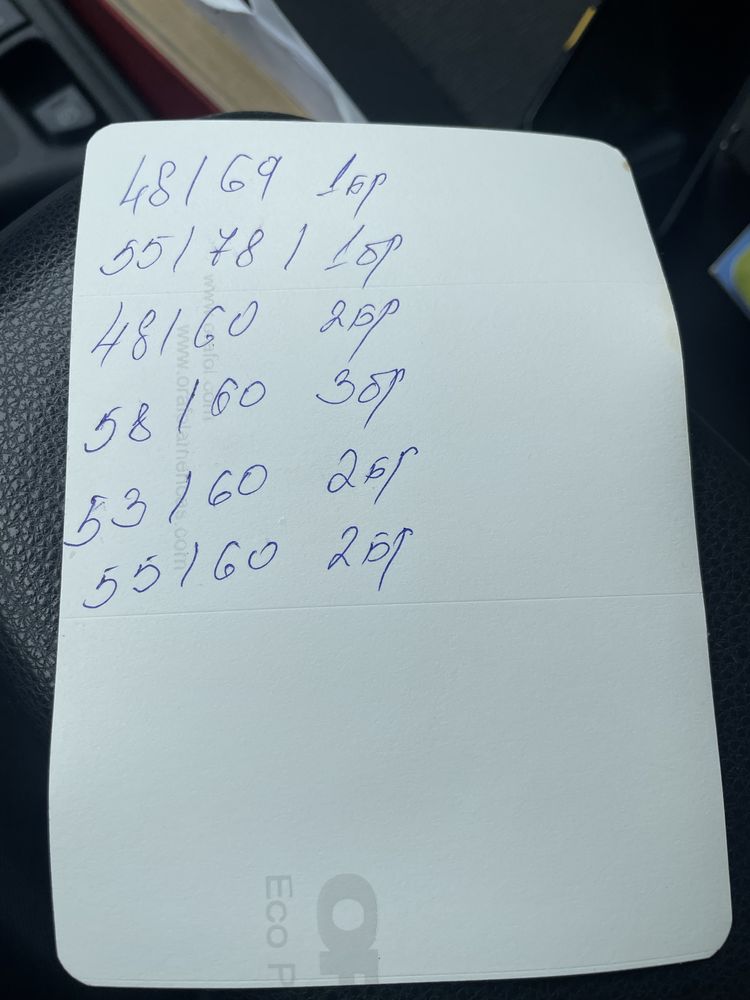 48/69 1бр
55/78/ 1бр
48/60 2бр
58/60 3бр
53/60 2бр
55/60 2бр
www.orafol.com
www.orafolamericas.com
Eco P